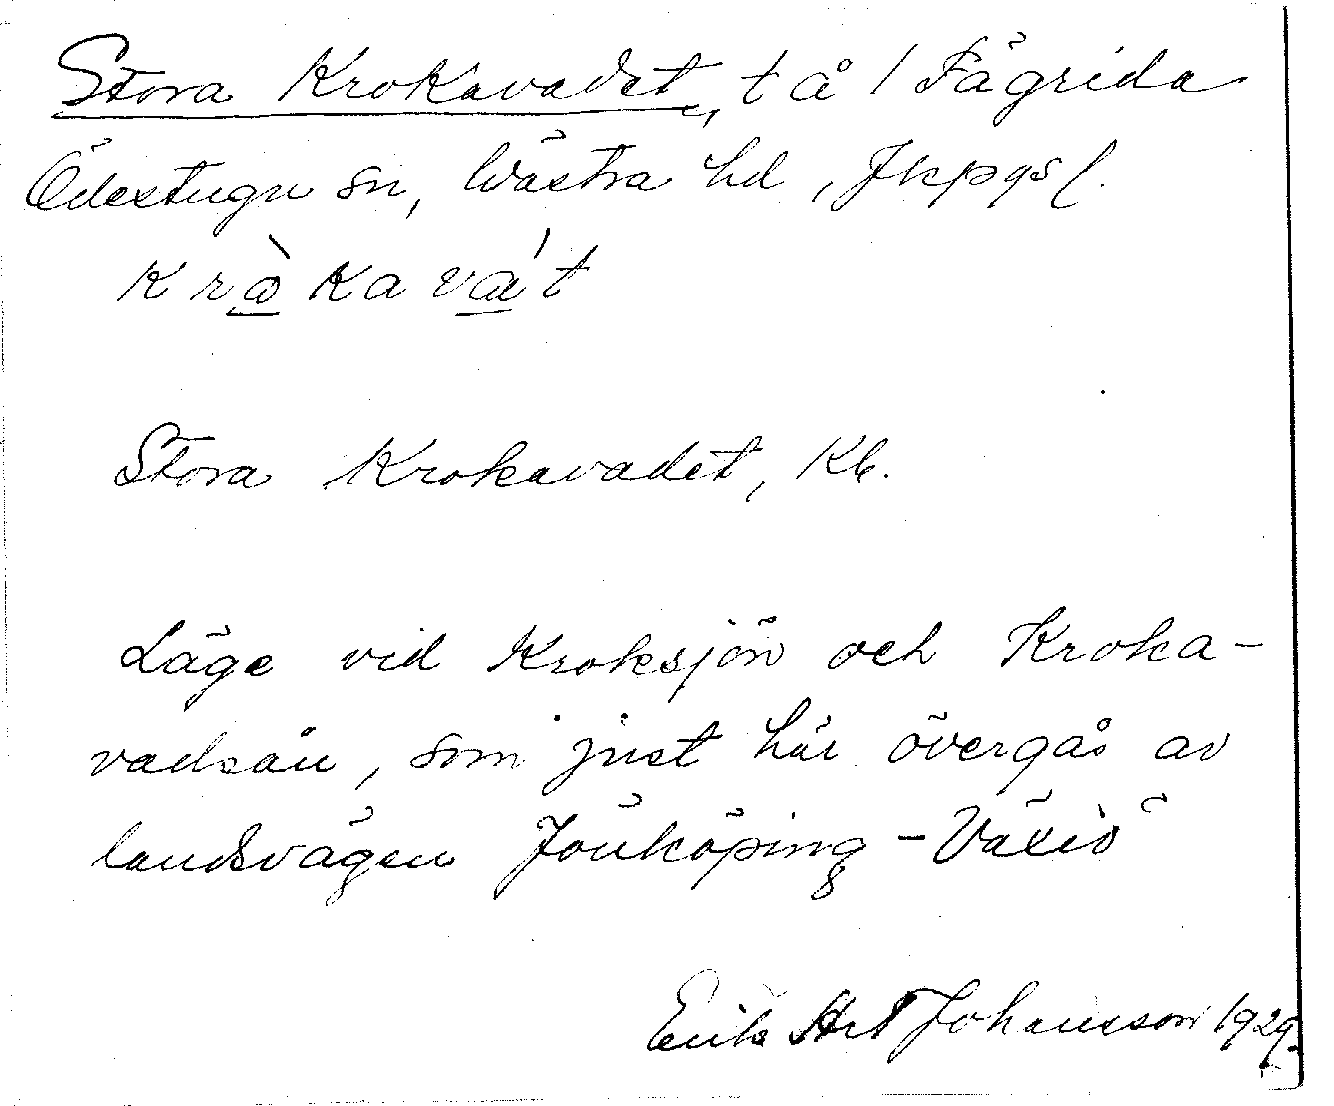 Stora Krokavadet, t å / Fågrida
Ödestugu sn, Västra hd, Jkpgs l.
Kròkavát
Stora Krokavadet, Kb.
Läge vid Kroksjön och Kroka-
vadsån, som just här övergås av
landsvägen Jönköping - Växiö
Erik Johansson 1929.